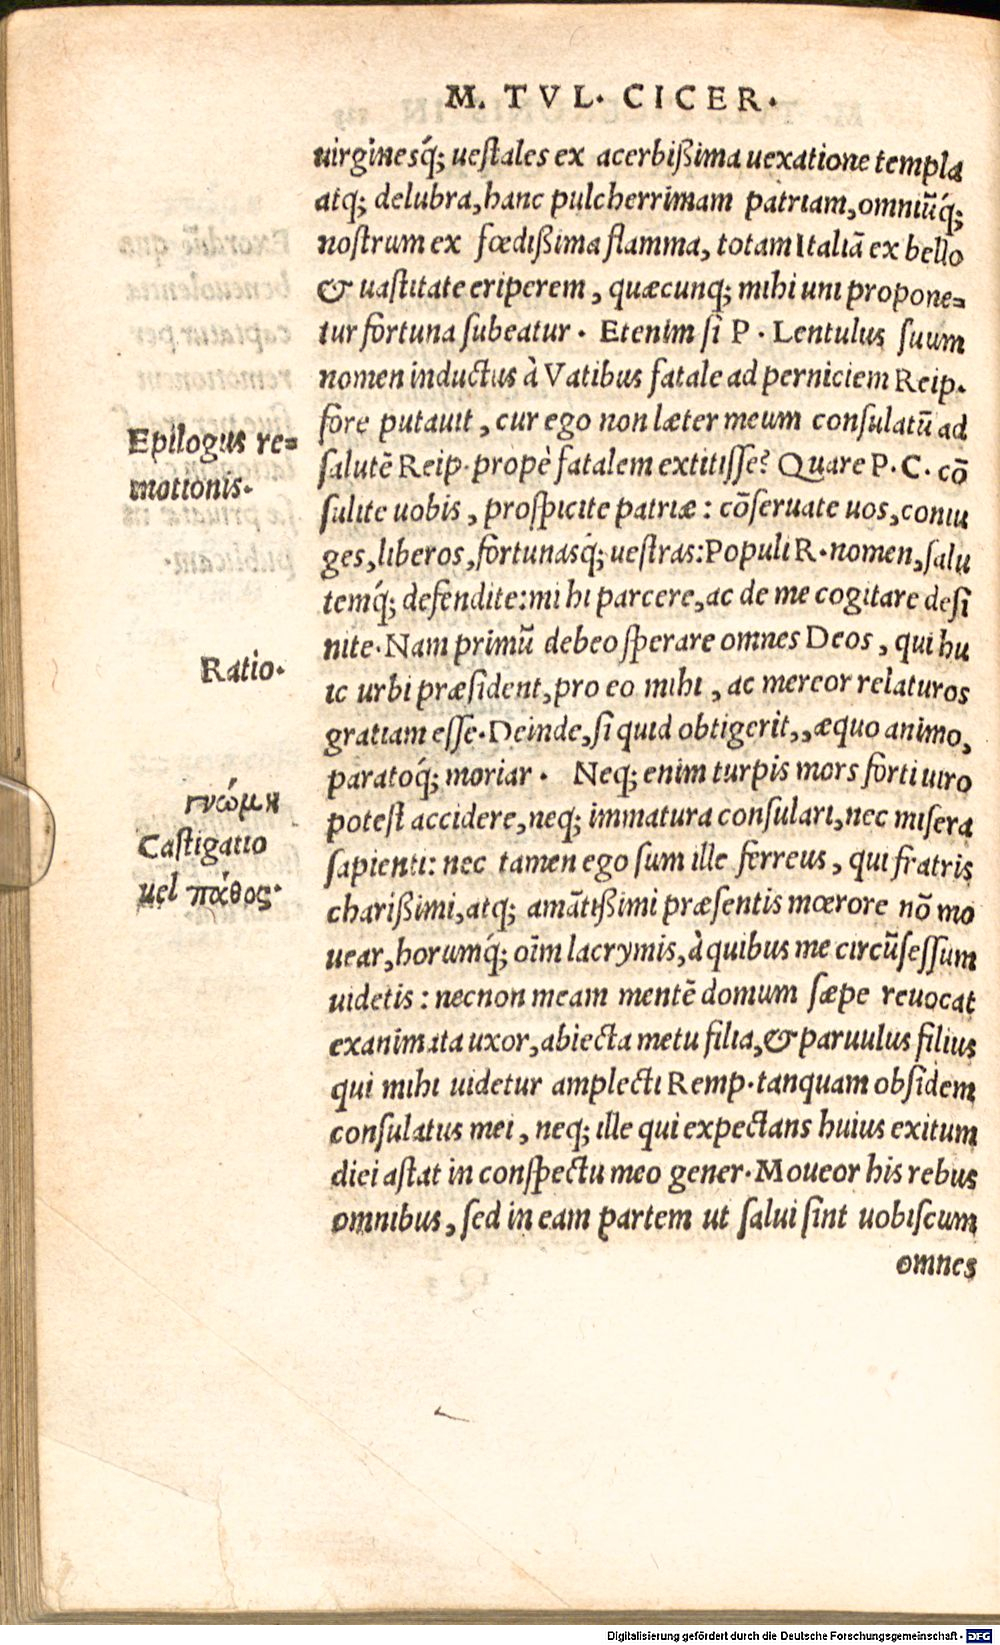 M. TVL. CICER.
uirginesq́; uestales ex acerbißima uexatione templa
atq; delubra, hanc pulcherrimam patriam, omniũq́;
nostrum ex fœdißima flamma, totam Italiã ex bello
& uastitate eriperem, quæcunq; mihi uni propone=
tur fortuna subeatur. Etenim si P. Lentulus suum
nomen inductus à Vatibus fatale ad perniciem Reip.
fore putauit, cur ego non læter meum consulatũ ad
salutẽ Reip. propè fatalem extitisse? Quare P. C. cõ
sulite uobis, prospicite patriæ: cõseruate uos, coniu
ges, liberos, fortunasq́; uestras: Populi R. nomen, salu
temq́; defendite: mihi parcere, ac de me cogitare desi
nite. Nam primũ debeo sperare omnes Deos, qui hu
ic urbi præsident, pro eo mihi, ac mereor relaturos
gratiam esse. Deinde, si quid obtigerit,, æquo animo,
paratoq́; moriar. Neq; enim turpis mors forti uiro
potest accidere, neq; immatura consulari, nec misera
sapienti: nec tamen ego sum ille ferreus, qui fratris
charißimi, atq; amãtißimi præsentis mœrore nõ mo
uear, horumq́; oĩm lacrymis, à quibus me circũsessum
uidetis: necnon meam mentẽ domum sæpe reuocat
exanimata uxor, abiecta metu filia, & paruulus filius
qui mihi uidetur amplecti Remp. tanquam obsidem
consulatus mei, neq; ille qui expectans huius exitum
diei astat in conspectu meo gener. Moueor his rebus
omnibus, sed in eam partem ut salui sint uobiscum
omnes
Epilogus re=
motionis.
Ratio.
γνώμη
Castigatio
uel πάθος.
Digitalisierung gefördert durch die Deutsche Forschungsgemeinschaft - DFG